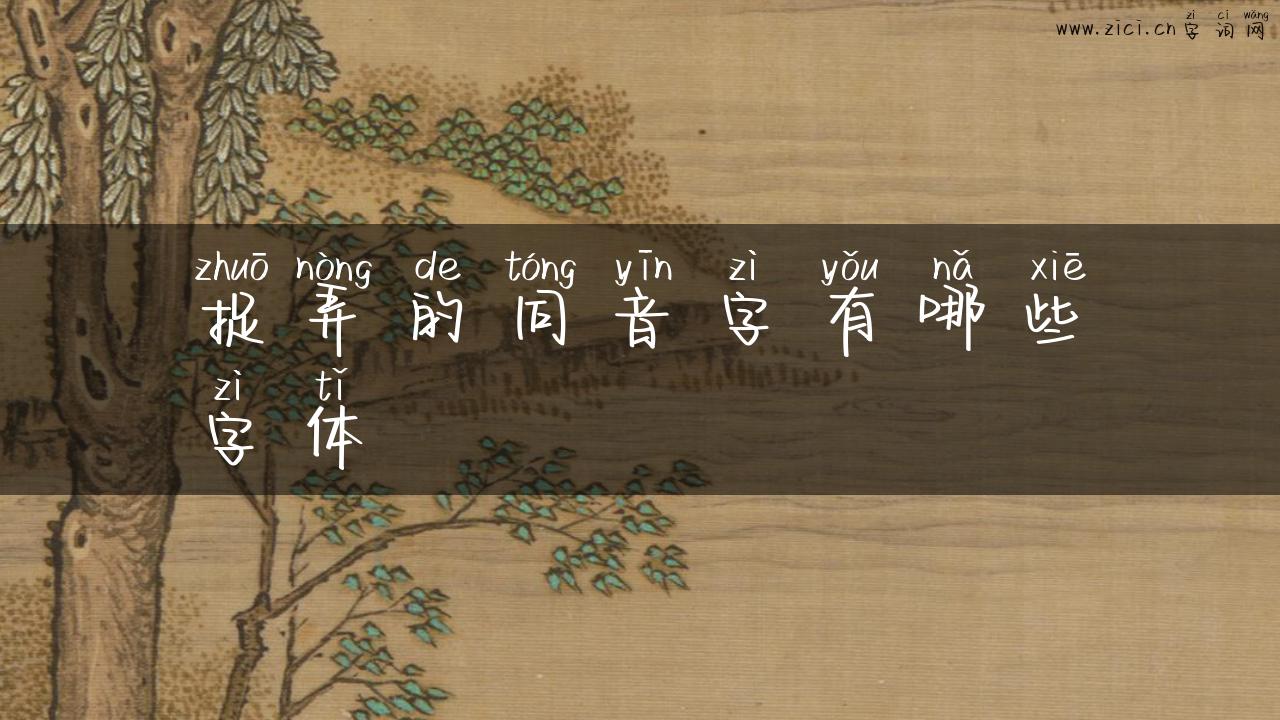 zì cí wǎng
www.zici.cn 字词网
zhuō nòng de tóng yīn zì yǒu nǎ xiē
捉弄的同音字有哪些
zì tǐ
字体